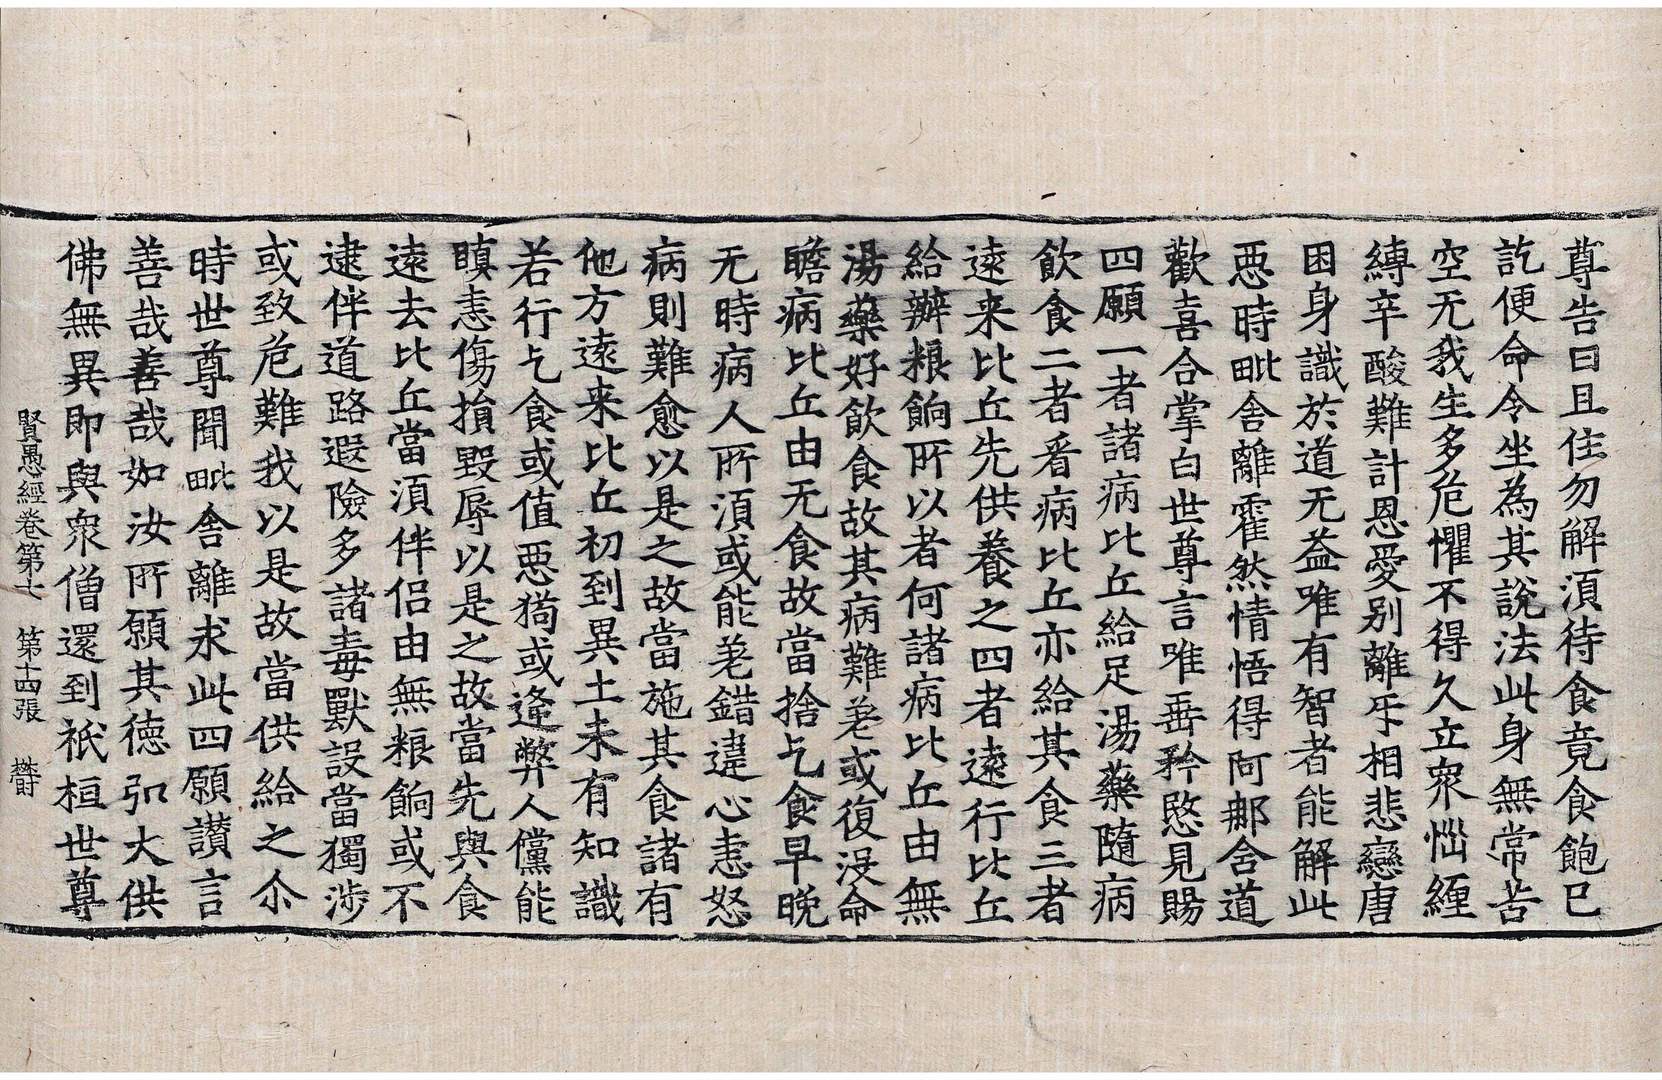 尊告曰且住勿解湏待食竟食飽已
訖便命令坐為其說法此身無常苦
空无我生多危懼不得久立衆惱纏
縛辛酸難計恩愛别離㸦相悲戀唐
困身識於道无益唯有智者能解此
惡時毗舍離霍然情悟得阿那含道
歡喜合掌白世尊言唯垂矜愍見賜
四願一者諸病比丘給足湯藥隨病
飲食二者看病比丘亦給其食三者
逺来比丘先供養之四者逺行比丘
給辦粮餉所以者何諸病比丘由無
湯藥好飲食故其病難差或復没命
瞻病比丘由无食故當捨乞食早晚
无時病人所湏或能差錯違心恚怒
病則難愈以是之故當施其食諸有
他方逺来比丘初到異土未有知識
若行乞食或值惡狗或逢弊人儻能
瞋恚傷損毀辱以是之故當先與食
逺去比丘當湏伴侣由無粮餉或不
逮伴道路遐險多諸毒獸設當獨涉
或致危難我以是故當供給之尒
時世尊聞毗舍離求此四願讃言
善哉善哉如汝所願其徳弘大供
佛無異即與衆僧還到祇桓世尊
賢愚經卷第七 第十四張